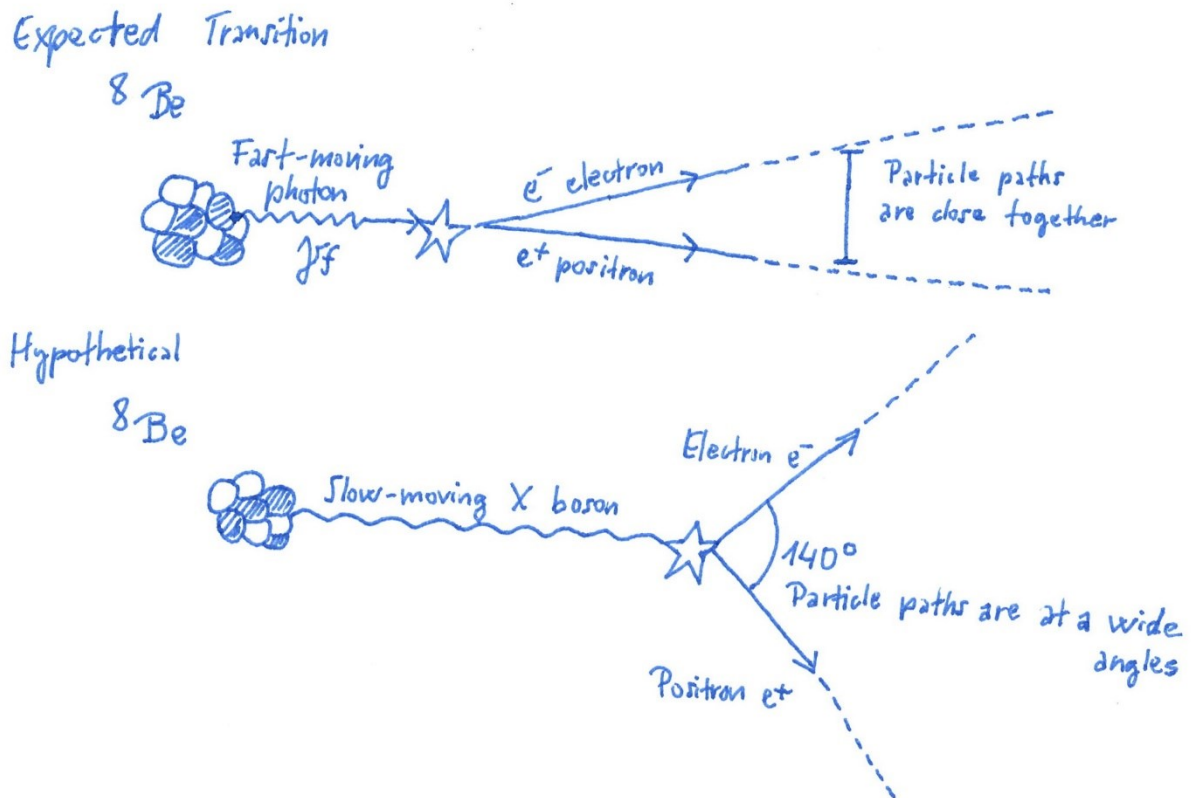 Expected Transition
8 Be
Fast-moving
photon
e- electron
e+ positron
Particle paths
are close together
Hypothetical
8 Be
Slow-moving X boson
Electron e-
140°
Particle paths are at a wide
angles
Positron e+